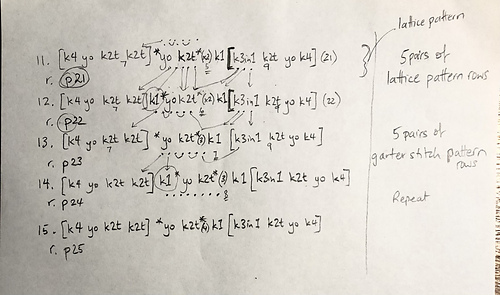 lattice pattern
11. [k4 yo k2t k2t] *yo k2t*(x2) k1 [k3in1 k2t yo k4] (21)
7 9
r. p21
5 pairs of
lattice pattern rows
12. [k4 yo k2t k2t] [k1]*yo k2t*(x2) k1 [k3in1 k2t yo k4] (22)
7
r. p22
13. [k4 yo k2t k2t] *yo k2t* k1 [k3in1 k2t yo k4]
7 9
r. p23
5 pairs of
garter stitch pattern
rows
14. [k4 yo k2t k2t] k1 *yo k2t* k1 [k3in1 k2t yo k4]
r. p24
8
Repeat
15. [k4 yo k2t k2t] *yo k2t* k1 [k3in1 k2t yo k4]
r. p25